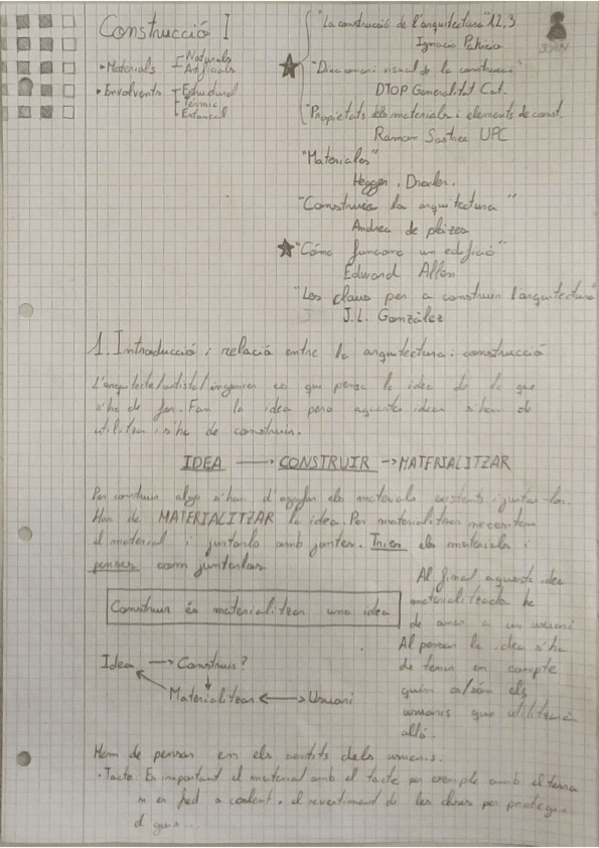 Construcció I
• Materials
Naturals
Artificials
• Envolvents
Estructural
Tèrmic
Estancal
"La construcció de l'arquitectura" 1,2,3
Ignacio Paricio
visual de la construcció"
DTOP Generalitat Cat.
"Propietats dels materials i elements de const.
Ramon Sastre UPC
"Materiales"
Hegger, Drexler.
"Construir la arquitectura"
Andrea de plazes
"Cómo funciona un edificio"
Edward Allen
"Les claus per a construir l'arquitectura"
J.L. González
1. Introducció i relació entre la arquitectura i construcció
L'arquitecte/artista/enginyer es qui pensa la idea de lo que
s'ha de fer. Fan la idea pero aquesta idea s'han de
utilitzar i s'ha de construir.
IDEA → CONSTRUIR → MATERIALITZAR
Per construir algo s'han d'agafar els materials existents i juntar-los.
Han de MATERIALITZAR la idea. Per materialitzar necessitem
el material i juntarlo amb juntes. Trien els materials i
penses com juntarlos
Construir és materialitzar una idea
Al final aquesta idea
materialitzada ha
de anar a un usuari
Al pensar la idea s'ha
de tenir en compte
quin es/són els
usuaris que utilitzarà
allò.
Idea → Construir?
Materialitzar ↔ Usuari
Hem de pensar en els sentits dels usuaris.
• Tacte: Es important el material amb el tacte per exemple amb el tema
si es fred o calent, el revestiment de les per protegir